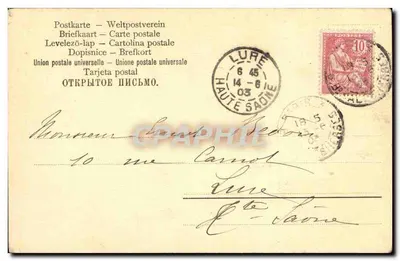 Postkarte - Weltpostverein
Briefkaart - Carte postale
Levelező-lap - Cartolina postale
Dopisnice - Brefkort
Union postale universelle - Unione postale universale
Tarjeta postal
ОТКРЫТОЕ ПИСЬМО.
LURE
6 45
14 - 6
03
HAUTE SAONE
10
CPAPHIL
Monsieur Louis
10 rue Carnot
Lure
Hte Saône